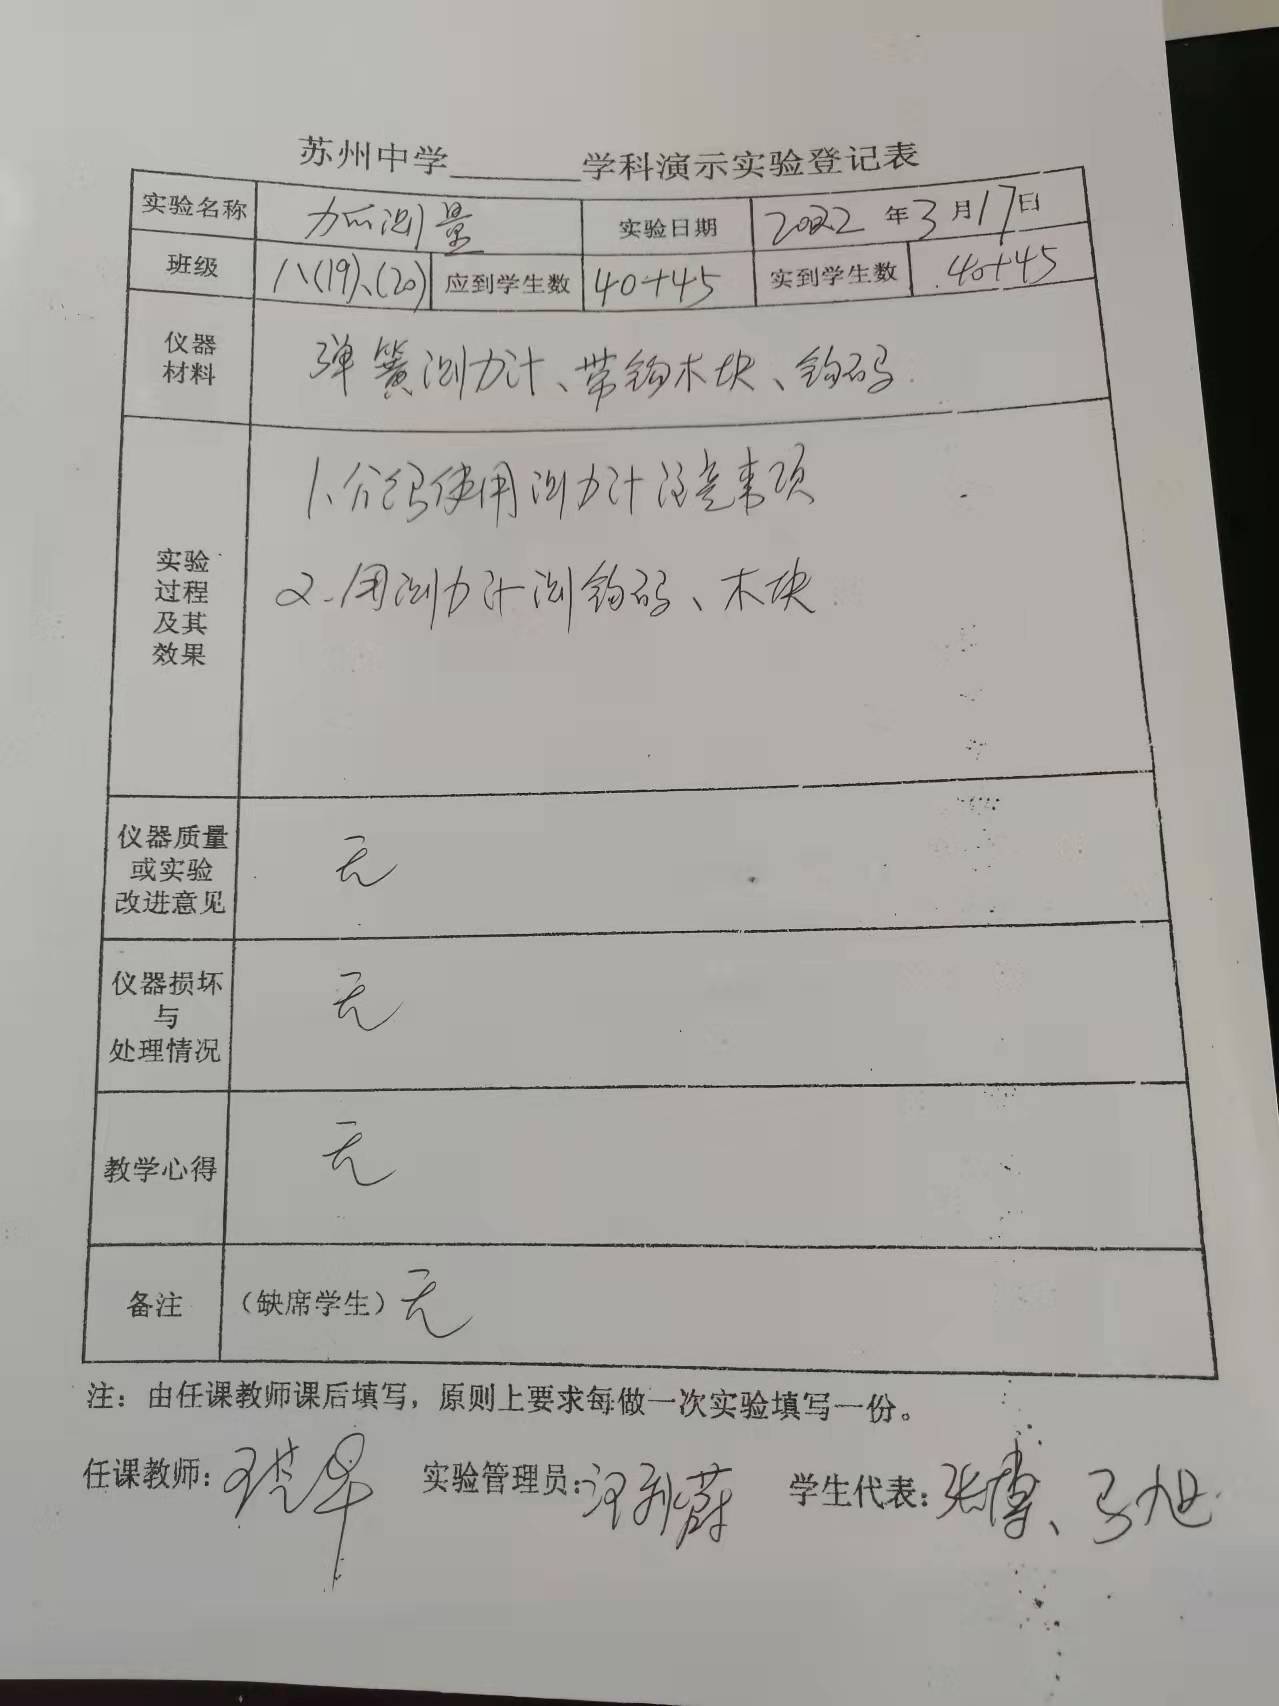 苏州中学______学科演示实验登记表
实验名称 力的测量 实验日期 2022 年 3 月 17 日
班级 八(19)、(20) 应到学生数 40+45 实到学生数 40+45
仪器
材料
弹簧测力计、带钩木块、钩码
实验
过程
及其
效果
1、介绍使用测力计注意事项
2、用测力计测钩码、木块
仪器质量
或实验
改进意见
无
仪器损坏
与
处理情况
无
教学心得 无
备注 (缺席学生) 无
注：由任课教师课后填写，原则上要求每做一次实验填写一份。
任课教师： 实验管理员： 学生代表：张博、马旭